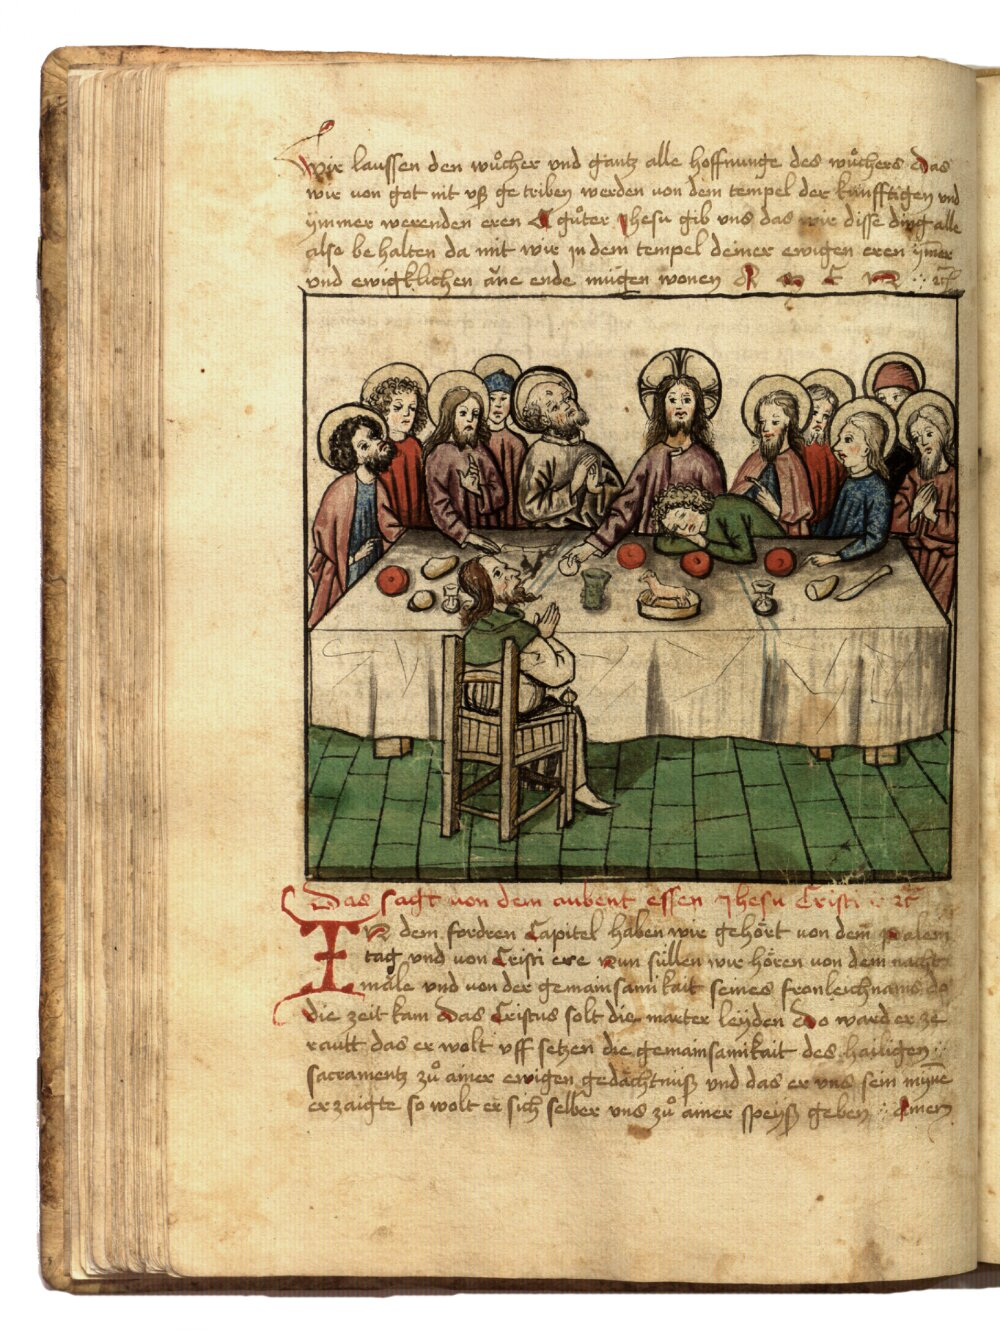 Wir laussen den wuͦcher vnd gantz alle hoffnunge des wuͦchers Das
wir von got nit vß ge triben werden von dem tempel der künfftigen vnd
ymmer werenden eren O guͦter Jhesu gib vns das wir disse ding alle
also be halten da mit wir in dem tempel deiner ewigen eren ym̄er
vnd ewigklichen āne ende mügen wonen A M E N
Das sagt von dem aubent essen Jhesu Cristi
IN dem fordren Capitel haben wir gehört von dem palem
tag vnd von Cristi ere Nun süllen wir hören von dem nacht
male vnd von der gemainsamikait seines fronleichnams do
die zeit kam Das Cristus solt die marter leyden Do ward er ze
rautt das er wolt vff setzen die gemainsamikait des hailigen
sacramentz zuͦ ainer ewigen gedächtnüß vnd das er vns sein myn̄e
erzaigte so wolt er sich selber vns zuͦ ainer speyß geben Amen